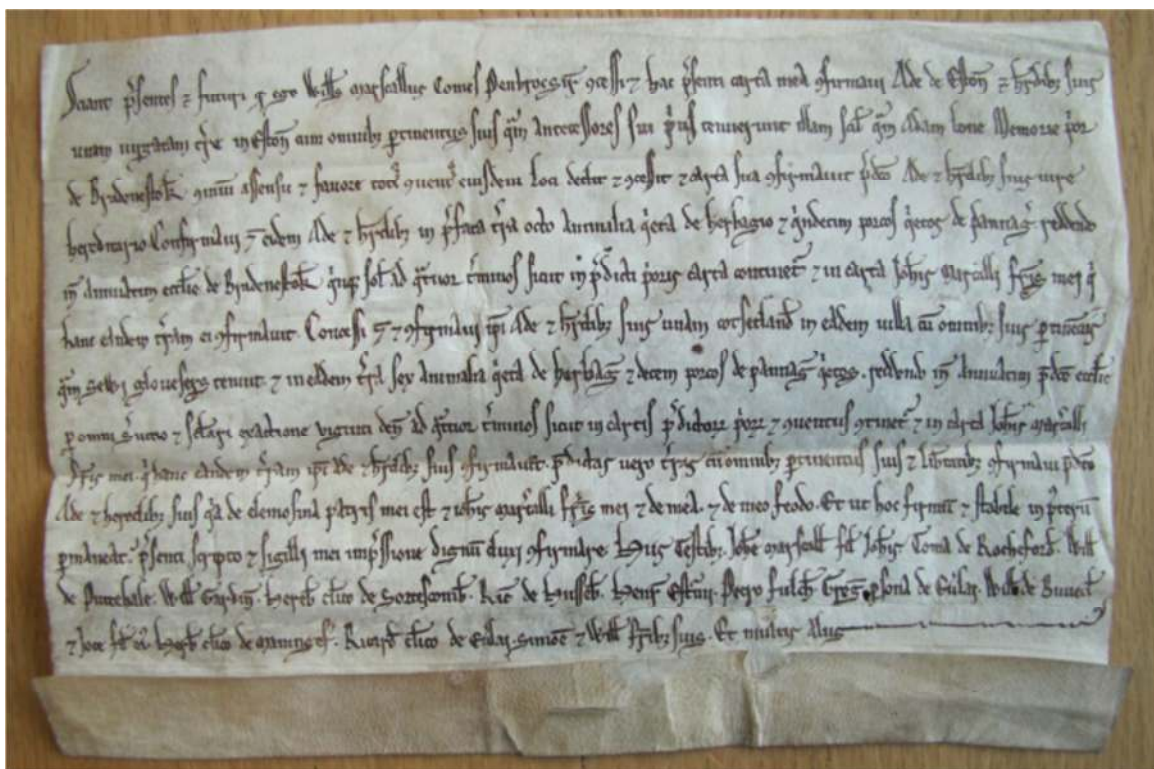 Sciant p̄sentes ⁊ futuri q̄ ego Wills marescallus Comes Penbrocꝫ ꝯcessi ⁊ hac p̄senti carta mea ꝯfirmaui Ade de Eston̄ ⁊ h̄edibꝫ suis
unam uirgatam t̄re in Eston̄ cum omnibꝫ ꝑtinentiis suis q̄m Antecessores sui p̄us tenuerunt illam scil q̄m Adam bone Memorie p̄or
de Bradenestok̄ ꝯmuni assensu ⁊ fauore toci ꝯuent eiusdem loci dedit ⁊ ꝯcessit ⁊ carta sua ꝯfirmauit p̄dc̄o Ade ⁊ h̄edibꝫ suis iure
hereditario Confirmaui eidem Ade ⁊ h̄edibꝫ in p̄fata t̄ra octo Animalia q̄eta de herbagio ⁊ q̄ndecim porcos q̄etos de pannaḡ. reddendo
in̄ Annuatim ecclie de Bradenestok̄ q̄nqꝫ sol̄ ad q̄tuor t̄minos sicut in p̄dicti p̄oris carta continet̄ ⁊ in carta Ioh̄is marscalli fr̄is mei q̄
hanc eandem t̄ram ei ꝯfirmauit. Concessi ⁊ ꝯfirmaui ip̄i Ade ⁊ h̄edibꝫ suis unam cotsetland̄ in eadem uilla cū omnibꝫ suis ꝑtinenciis
q̄m tenuit ⁊ in eadem t̄ra sex Animalia q̄eta de herbaḡ ⁊ decem porcos de pannaḡ q̄etos. reddendo in̄ Annuatim p̄dc̄e ecclie
ꝑ omni s̄uicio ⁊ sc̄lari exactione viginti den̄ ad q̄tuor t̄minos sicut in cartis p̄dictorꝫ p̄or ⁊ ꝯuentus ꝯtinet̄ ⁊ in carta Ioh̄is marscalli
fr̄is mei. q̄ hanc eandem t̄ram ip̄i Ade ⁊ h̄edibꝫ suis ꝯfirmauit. p̄dictas uero t̄ras cū omnibꝫ ꝑtinentiis suis ⁊ lib̄tatibꝫ ꝯfirmaui p̄dc̄o
Ade ⁊ heredibꝫ suis q̄a de elemosina patris mei est ⁊ ioh̄is marscalli fr̄is mei ⁊ de mea. ⁊ de meo feodo. Et ut hoc firmū ⁊ stabile inp̄petuū
ꝑmaneat. p̄senti scripto ⁊ sigilli mei imp̄ssione dignum duxi ꝯfirmare. Hiis Testibꝫ. Ioh̄e marescall̄ fil̄ Ioh̄is Toma de Rocheford̄. Will̄
de Puttehale. Will̄ Gardin̄. Herb̄ cl̄ico de. Ric̄ de Husseb̄. Henr̄ Esturm̄. Petro fulch̄. Greḡ p̄sona de. Will̄ de
⁊ Ioce fil̄ ei. Herb̄ cl̄ico de. Ricard̄ cl̄ico de. Simon̄e ⁊ Will̄ fr̄ibꝫ suis. Et multis Aliis